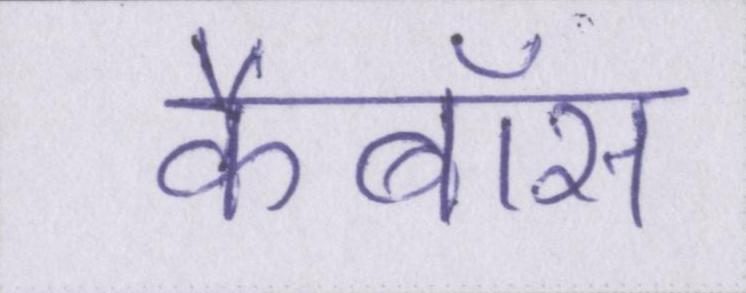 कैबॉस